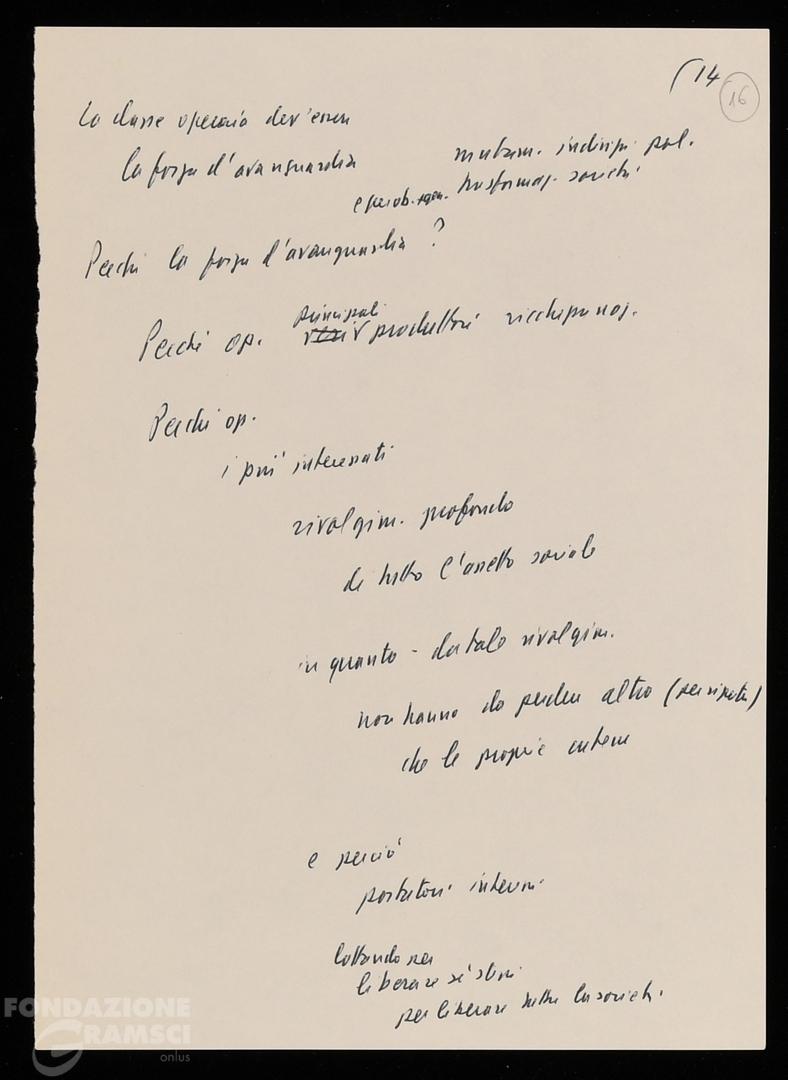 (14
16
La classe operaia dev'essere
la forza d'avanguardia
mutam. indirizzi pol.
e trasformaz. società
Perché la forza d'avanguardia ?
Perché op. principali produttori ricchezza naz.
Perché op.
i più interessati
rivolgim. profondo
di tutto l'assetto sociale
in quanto - da tale rivolgim.
non hanno da perdere altro
che le proprie catene
e perciò
portatori interessi
lottando per
liberare sé stessi
per liberare tutta la società.
FONDAZIONE
GRAMSCI
onlus